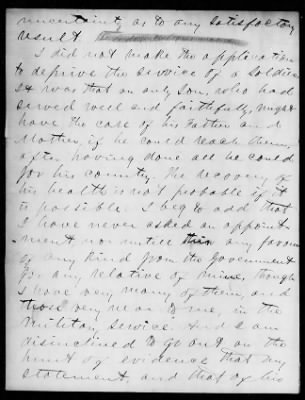 uncertainty as to any satisfactory
result
I did not make the application
to deprive the service of a soldier
It was that an only son, who had
served well and faithfully, might
have the care of his Father and
Mother, if he could reach them,
after having done all he could
for his country. The recovery of
his health is not probable if it
is possible. I beg to add that
I have never asked an appoint
ment nor untill this any favour
of any kind from the government
for any relative of mine, though
I have very many of them, and
those very near to me, in the
Military service. And I am
disinclined to go out on the
hunt of evidence that my
statement, and that of his